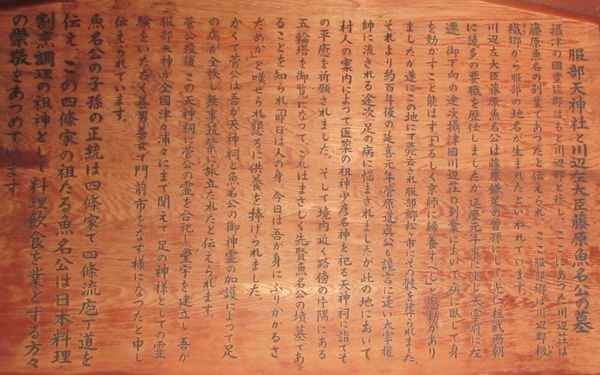 服部天神社と川辺左大臣藤原魚名公の墓
摂津の国豊能郡はもと川辺郡と称し、ここにあつた川辺荘は
藤原魚名の別業であつたと伝えられ、ここ服部郷は川辺郡機
織郷から服部の地名が生まれたといわれています。
川辺左大臣藤原魚名公は藤原鎌足の曽孫にして光仁桓武両朝
に幾多の要職を歴任しましたが延暦元年事に坐し太宰府に左
遷、御下向の途次摂津國川辺荘の別業において病に臥して身
を動かすこと能はず「よろしく京師に帰養すべし」と恩勅があり
ましたが遂にこの地にて薨去され服部郷松市にその骸を葬られました。
それより約百年後の延喜元年菅原道真公も讒言に逢い太宰権
師に流される途次、足の病に悩まされましたが此の地において
村人の案内によって医薬の祖神少彦名神を祀る天神祠に詣でそ
の平癒を祈願されました。そして境内近くの路傍の片隅にある
五輪塔を御覧になって、これはまさしく先賢魚名公の墳墓であ
ることを知られ「昨日は人の身、今日は吾が身にふりかかるさ
だめか」と嘆ぜられ懇ろに供養を捧げられました。
かくて菅公は吾が天神祠と魚名公の御神霊の加護によって足
の病が全快し無事筑紫に旅立たれたと伝えられます。
菅公歿後この天神祠に菅公の霊を合祀し堂宇を建立し、吾が
服部天神が全國津々浦々にまで聞えて足の神様としての霊
験をいただく善男善女で門前市をなす様になつたと申し
伝えられています。
魚名公の子孫の正統は四條家で四條流庖丁道を
伝え、この四條家の祖たる魚名公は日本料理
割烹調理の祖神として料理飲食を業とする方々
の崇敬をあつめています。